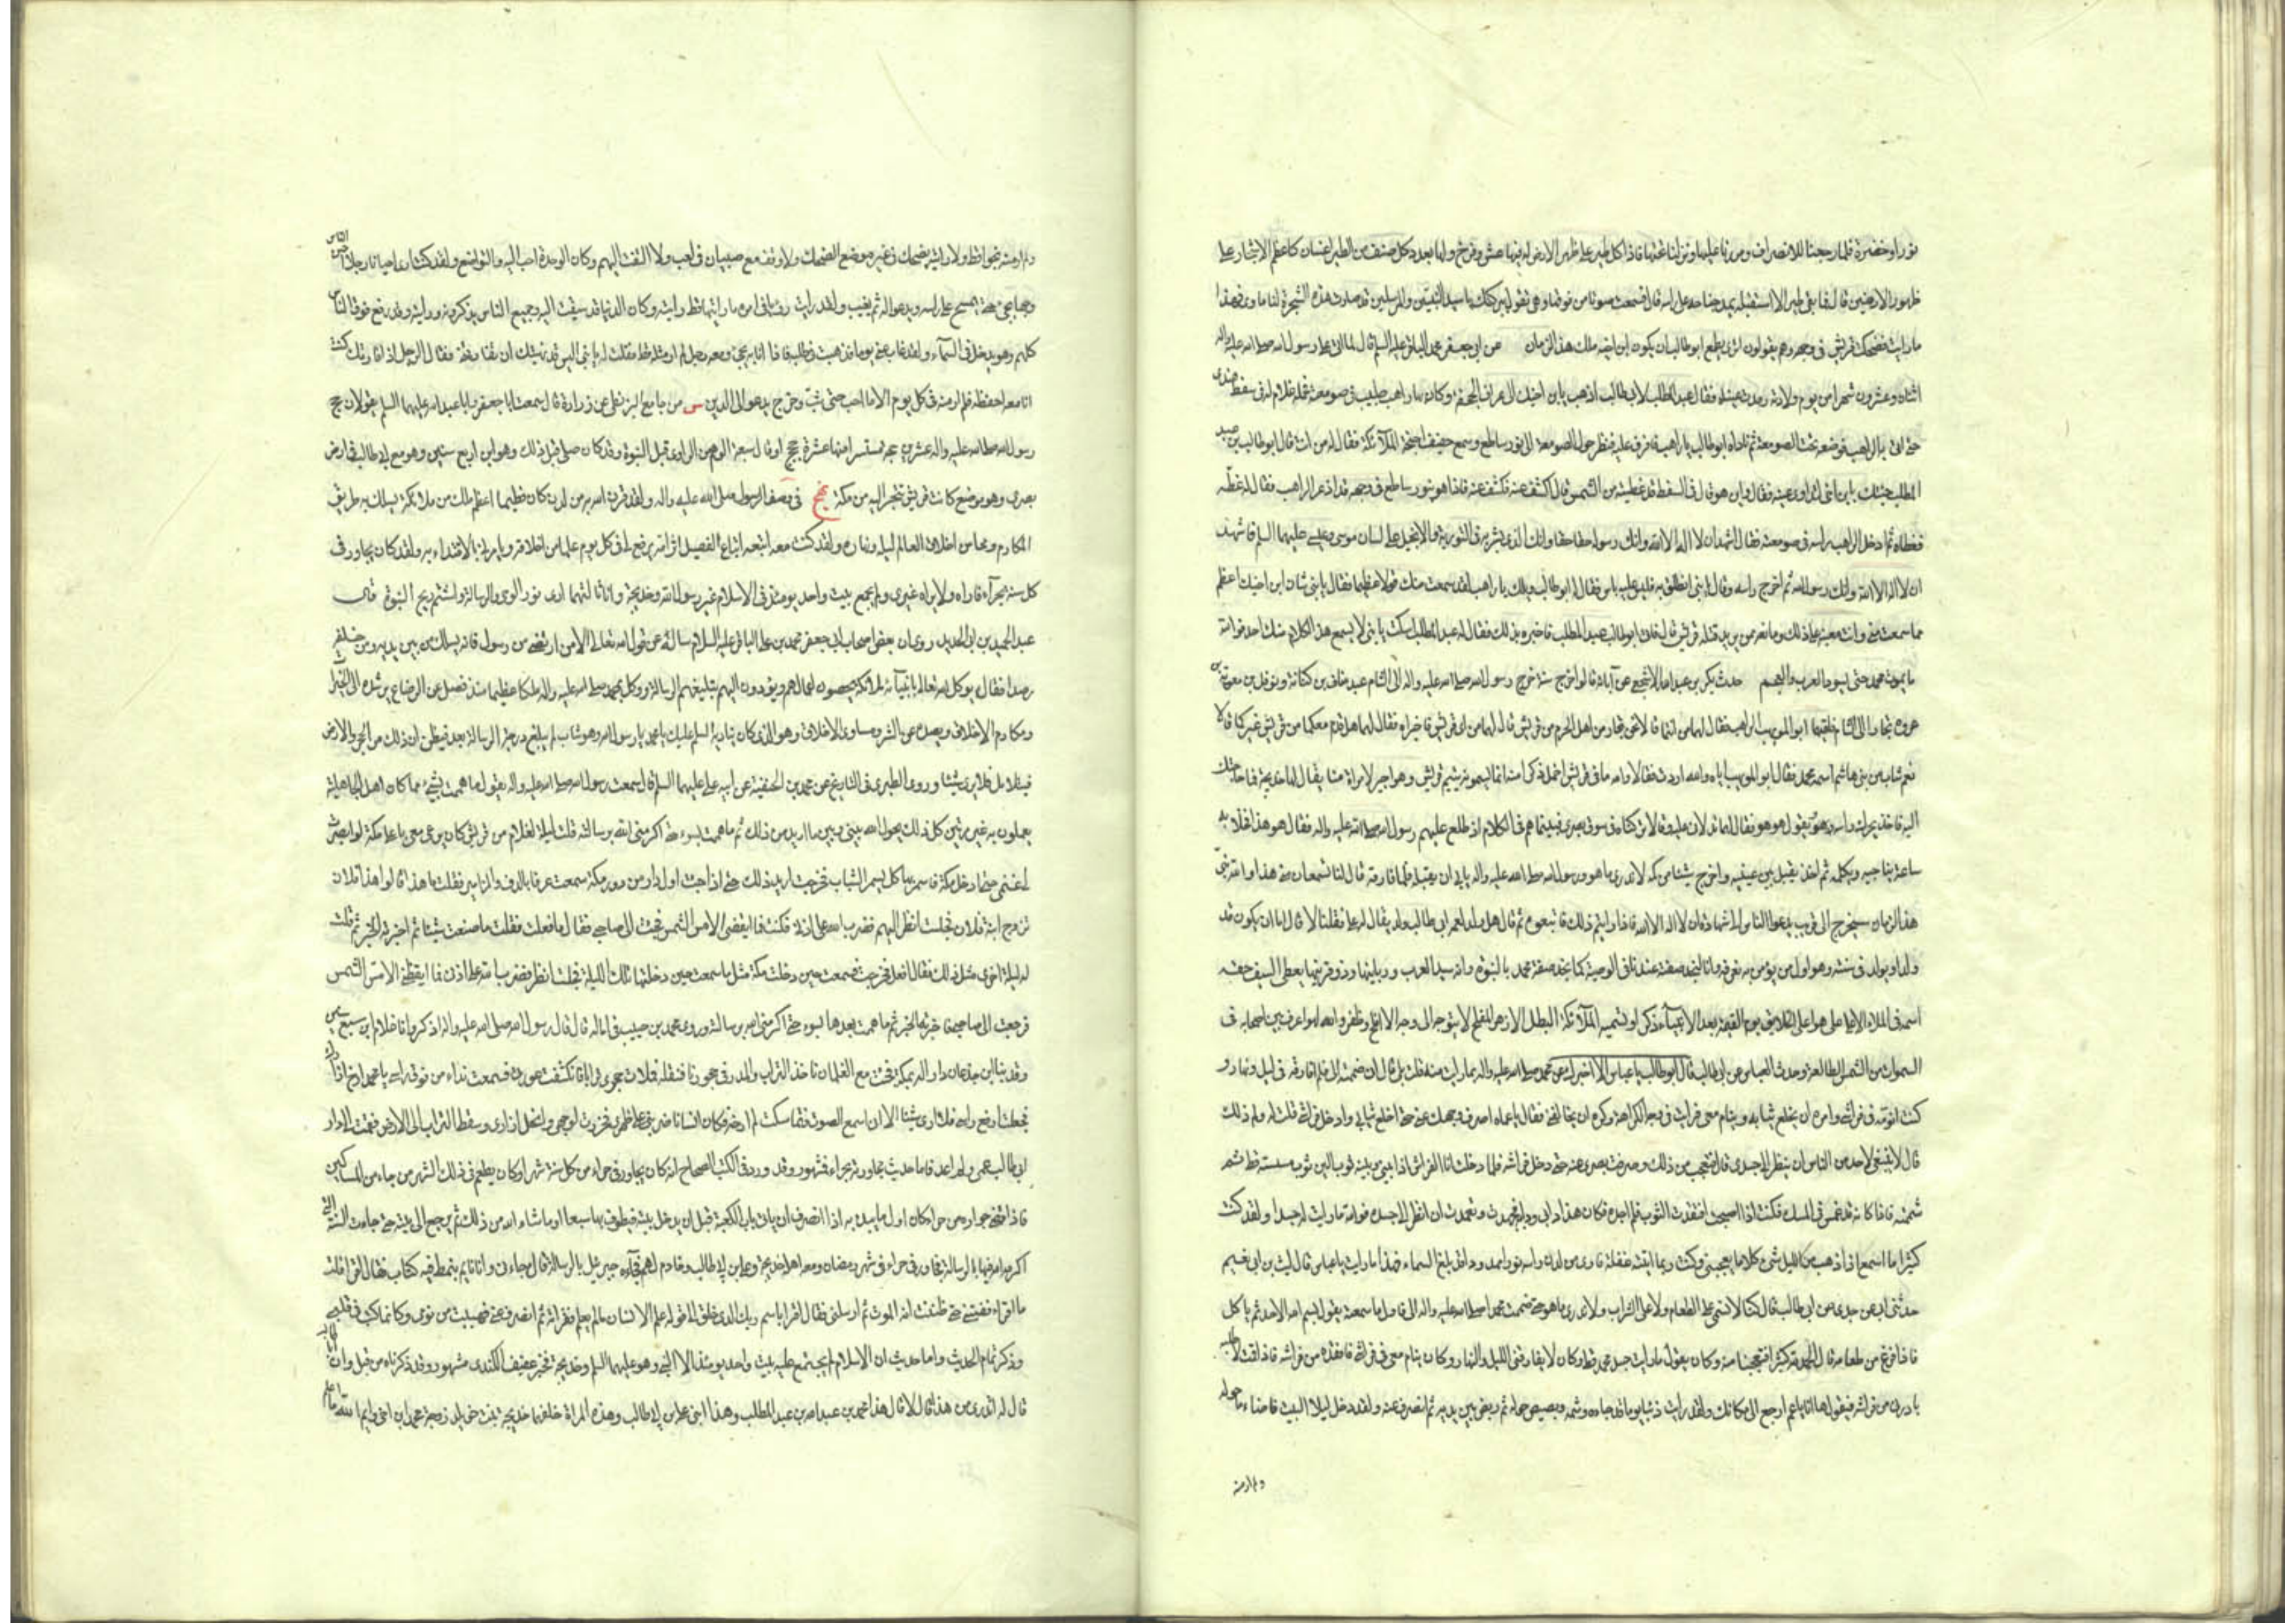 نورا وخضرة فلما رجعنا للانصراف ومررنا عليها ونزلنا تحتها فاذا كل طير على ظهر الارض له فيها عش وفرخ ولها بعدد كل صنف من الطير اغصان كاعظم الاشجار على
ظهور الارضين قال فما بقى طير الا استقبله يمد جناحه على راسه قال فسمعت صوتا من فوقها وهى تقول ببركتك يا سيد النبيين والمرسلين قد صارت هذه الشجرة لنا ماوى فهذا
ما رايت فضحك قريش فى وجهه وهم يقولون اترى يطمع ابو طالب ان يكون ابن اخيه ملك هذا الزمان عن ابى جعفر محمد الباقر عليه السلم قال لما اتى على رسول الله صلى الله عليه واله
اثنان وعشرون شهرا من يوم ولادته رمدت عيناه فقال عبد المطلب لابى طالب اذهب بابن اخيك الى عراف الجحفة وكان بها راهب طبيب فى صومعة فحمله غلام له فى سفط هندى
حتى اتى به الراهب فوضعه تحت الصومعة ثم ناداه ابو طالب يا راهب فاشرف عليه فنظر حول الصومعة الى نور ساطع وسمع حفيف اجنحة الملائكة فقال له من انت قال ابو طالب بن عبد
المطلب جئتك بابن اخى لتداوى عينه فقال واين هو قال فى السفط قد غطيته من الشمس قال اكشف عنه فكشف عنه فاذا هو بنور ساطع فى وجهه قد اذعر الراهب فقال له غطه
فغطاه ثم ادخل الراهب راسه فى صومعته فقال اشهد ان لا اله الا الله وانك رسول الله حقا حقا وانك الذى بشر به فى التورية والانجيل على لسان موسى وعيسى عليهما السلم فاشهد
ان لا اله الا الله وانك رسول الله ثم اخرج راسه وقال يا بنى انطلق به فليس عليه باس فقال له ابو طالب ويلك يا راهب لقد سمعت منك قولا عظيما فقال يا بنى شان ابن اخيك اعظم
مما سمعت منى وانت معينه على ذلك ومانعه ممن يريد قتله من قريش قال فاتى ابو طالب عبد المطلب فاخبره بذلك فقال له عبد المطلب اسكت يا بنى لا يسمع هذا الكلام منك احد فوالله
ما يموت محمد حتى يسود العرب والعجم حدث بكر بن عبد الله الاشجعى عن آبائه قالوا خرج سنة خرج رسول الله صلى الله عليه واله الى الشام عبد مناف بن كنانة ونوفل بن معوية بن
عروة تجارا الى الشام فلقيهما ابو المويهب الراهب فقال لهما من انتما قالا نحن تجار من اهل الحرم من قريش قال لهما من اى قريش فاخبراه فقال لهما هل قدم معكما من قريش غيركما قالا
نعم شاب من بنى هاشم اسمه محمد فقال ابو المويهب اياه والله اردت فقالا والله ما فى قريش اخمل ذكرا منه انما يسمونه يتيم قريش وهو اجير لامراة منا يقال لها خديجة فما حاجتك
اليه فاخذ يحرك راسه ويقول هو هو فقال لهما تدلانى عليه فقالا تركناه فى سوق بصرى فبينما هم فى الكلام اذ طلع عليهم رسول الله صلى الله عليه واله فقال هو هذا فخلا به
ساعة يناجيه ويكلمه ثم اخذ يقبل بين عينيه واخرج شيئا من كمه لا ندرى ما هو ورسول الله صلى الله عليه واله يابى ان يقبله فلما فارقه قال لنا تسمعان منى هذا والله نبى
هذا الزمان سيخرج الى قريب يدعوا الناس الى شهادة ان لا اله الا الله فاذا رايتم ذلك فاتبعوه ثم قال هل ولد لعمه ابى طالب ولد يقال له على فقلنا لا قال اما ان يكون قد
ولد او يولد فى سنته وهو اول من يؤمن به نعرفه وانا لنجد صفته عندنا فى الوصية كما نجد صفة محمد بالنبوة وانه سيد العرب وربانيها وذو قرنيها يعطى السيف حقه
اسمه فى الملاء الاعلى على هو اعلى الخلائق يوم القيمة بعد الانبياء ذكرا وتسميه الملائكة البطل الازهر المفلج لا يتوجه الى وجه الا افلج وظفر والله لهو اعرف بين اصحابه فى
السموات من الشمس الطالعة وحدث العباس عن ابى طالب قال ابو طالب يا عباس الا اخبرك عن محمد صلى الله عليه واله بما رايت منه قلت بلى قال انى ضممته الى فلم افارقه فى ليل ونهار و
كنت انومه فى فراشى وامره ان يخلع ثيابه وينام معى فرايت فى وجهه الكراهة وكره ان يخالفنى فقال يا عماه اصرف وجهك عنى حتى اخلع ثيابى وادخل فراشى قلت له ولم ذلك
قال لا ينبغى لاحد من الناس ان ينظر الى جسدى قال فتعجبت من ذلك وصرفت بصرى عنه حتى دخل فراشه فلما دخلت انا الفراش اذا بينى وبينه ثوب الين ثوب مسسته قط ثم
شممته فاذا كانه قد غمس فى المسك فكنت اذا اصبحت افتقدت الثوب فلم اجده فكان هذا دابى ودابه فجهدت وتعمدت ان انظر الى جسده فوالله ما رايت له جسدا ولقد كنت
كثيرا ما اسمع اذا ذهب من الليل شىء كلاما يعجبنى وكنت ربما اتيته غفلة فارى من لدن راسه نورا ممدودا قد بلغ السماء فهذا ما رايت يا عباس قال ليث بن ابى نعيم
حدثنى ابى عن جدى عن ابى طالب قال كنا لا نسمى على الطعام ولا على الشراب ولا ندرى ما هو حتى ضممت محمدا صلى الله عليه واله الى فاول ما سمعته يقول بسم الله الاحد ثم ياكل
فاذا فرغ من طعامه قال الحمد لله كثيرا فتعجبنا منه وكان يقول ما رايت جسد محمد قط وكان لا يفارقنى الليل والنهار وكان ينام معى فى فراشى فافقده من فراشه فاذا قمت لاطلبه
بادرنى من فراشه فيقول ها انا يا عم ارجع الى مكانك ولقد رايت ذئبا يوما قد جاءه وشمه وبصبص حوله ثم ربض بين يديه ثم انصرف عنه ولقد دخل ليلا البيت فاضاء ما حوله
ولم ار منه
ولم ار منه نجوا قط ولا رايته يضحك فى غير موضع الضحك ولا وقف مع صبيان فى لعب ولا التفت اليهم وكان الوحدة احب اليه والتواضع ولقد كنت ارى احيانا رجلا احسن الناس
وجها يجىء حتى يمسح على راسه ويدعو له ثم يغيب ولقد رايت رؤيا فى امره ما رايتها قط رايته وكان الدنيا قد سيقت اليه وجميع الناس يذكرونه ورايته وقد رفع فوق الناس
كلهم وهو يدخل فى السماء ولقد غاب عنى يوما فذهبت فى طلبه فاذا انا به يجىء ومعه رجل لم ار مثله قط فقلت له يا بنى اليس قد نهيتك ان تفارقنى فقال الرجل اذا فارقك كنت
انا معه احفظه فلم ار منه فى كل يوم الا ما احب حتى شب وخرج يدعو الى الدين س من جامع البزنطى عن زرارة قال سمعت ابا جعفر وابا عبد الله عليهما السلم يقولان حج
رسول الله صلى الله عليه واله عشرين حجة مستسرا منها عشرة حجج او قال سبعة الوهم من الراوى قبل النبوة وقد كان صلى قبل ذلك وهو ابن اربع سنين وهو مع ابى طالب فى ارض
بصرى وهو موضع كانت قريش تتجر اليه من مكة نهج فى وصف الرسول صلى الله عليه واله ولقد قرن الله به من لدن كان فطيما اعظم ملك من ملائكته يسلك به طريق
المكارم ومحاسن اخلاق العالم ليله ونهاره ولقد كنت معه اتبعه اتباع الفصيل اثر امه يرفع لى فى كل يوم علما من اخلاقه ويامرنى بالاقتداء به ولقد كان يجاور فى
كل سنة بحراء فاراه ولا يراه غيرى ولم يجمع بيت واحد يومئذ فى الاسلام غير رسول الله وخديجة وانا ثالثهما ارى نور الوحى والرسالة واشم ريح النبوة قال
عبد الحميد بن ابى الحديد روى ان بعض اصحاب ابى جعفر محمد بن على الباقر عليه السلام ساله عن قول الله تعالى الا من ارتضى من رسول فانه يسلك من بين يديه ومن خلفه
رصدا فقال يوكل الله تعالى بانبيائه ملائكة يحصون اعمالهم ويؤدون اليهم تبليغهم الرسالة ووكل بمحمد صلى الله عليه واله ملكا عظيما منذ فصل عن الرضاع يرشده الى الخيرات
ومكارم الاخلاق ويصده عن الشر ومساوى الاخلاق وهو الذى كان يناديه السلم عليك يا محمد يا رسول الله وهو شاب لم يبلغ درجة الرسالة بعد فيظن ان ذلك من الحجر والارض
فيتامل فلا يرى شيئا وروى الطبرى فى التاريخ عن محمد بن الحنفية عن ابيه على عليهما السلم قال سمعت رسول الله صلى الله عليه واله يقول ما هممت بشىء مما كان اهل الجاهلية
يعملون به غير مرتين كل ذلك يحول الله بينى وبين ما اريد من ذلك ثم ما هممت بسوء حتى اكرمنى الله برسالته قلت ليلة لغلام من قريش كان يرعى معى باعلا مكة لو ابصرت
لى غنمى حتى ادخل مكة فاسمر بها كما يسمر الشباب فخرجت اريد ذلك حتى اذا جئت اول دار من دور مكة سمعت عزفا بالدف والمزامير فقلت ما هذا قالوا هذا فلان
تزوج ابنة فلان فجلست انظر اليهم فضرب الله على اذنى فنمت فما ايقظنى الا مس الشمس فجئت الى صاحبى فقال ما فعلت فقلت ما صنعت شيئا ثم اخبرته الخبر ثم قلت
له ليلة اخرى مثل ذلك فقال افعل فخرجت فسمعت حين دخلت مكة مثل ما سمعت حين دخلتها تلك الليلة فجلست انظر فضرب الله على اذنى فما ايقظنى الا مس الشمس
فرجعت الى صاحبى فاخبرته الخبر ثم ما هممت بعدها بسوء حتى اكرمنى الله برسالته وروى محمد بن حبيب فى اماليه قال قال رسول الله صلى الله عليه واله اذكر وانا غلام ابن سبع سنين
وقد بنى ابن جذعان دارا له بمكة فجئت مع الغلمان ناخذ التراب والمدر فى حجورنا فننقله فملات حجرى ترابا فانكشفت عورتى فسمعت نداء من فوق راسى يا محمد ارخ ازارك
فجعلت ارفع راسى فلا ارى شيئا الا انى اسمع الصوت فتماسكت لم ارخه فكان انسانا ضربنى على ظهرى فخررت لوجهى وانحل ازارى وسقط التراب الى الارض فقمت الى دار
ابى طالب عمى ولم اعد فاما حديث مجاورته بحراء فمشهور وقد ورد فى الكتب الصحاح انه كان يجاور فى حراء من كل سنة شهرا وكان يطعم فى ذلك الشهر من جاءه من المساكين
فاذا قضى جواره من حراء كان اول ما يبدء به اذا انصرف ان ياتى باب الكعبة قبل ان يدخل بيته فيطوف بها سبعا او ما شاء الله من ذلك ثم يرجع الى بيته حتى جاءت السنة التى
اكرمه الله فيها بالرسالة فجاور فى حراء فى شهر رمضان ومعه اهله خديجة وعلى بن ابى طالب وخادم لهم فجاءه جبرئيل بالرسالة قال جاءنى وانا نائم بنمط فيه كتاب فقال اقرا قلت
ما اقراء ففتنى حتى ظننت انه الموت ثم ارسلنى فقال اقرا باسم ربك الذى خلق الى قوله علم الانسان ما لم يعلم فقراته ثم انصرف عنى فهببت من نومى وكانما كتب فى قلبى كتاب
وذكر تمام الحديث واما حديث ان الاسلام لم يجتمع عليه بيت واحد يومئذ الا النبى وهو عليهما السلم وخديجة فخبر عفيف الكندى مشهور وقد ذكرناه من قبل وان
قال له اتدرى من هذا قال لا قال هذا محمد بن عبد الله بن عبد المطلب وهذا ابنى على بن ابى طالب وهذه المراة خلفهما خديجة بنت خويلد زوجة محمد ابن اخى وايم الله ما اعلم